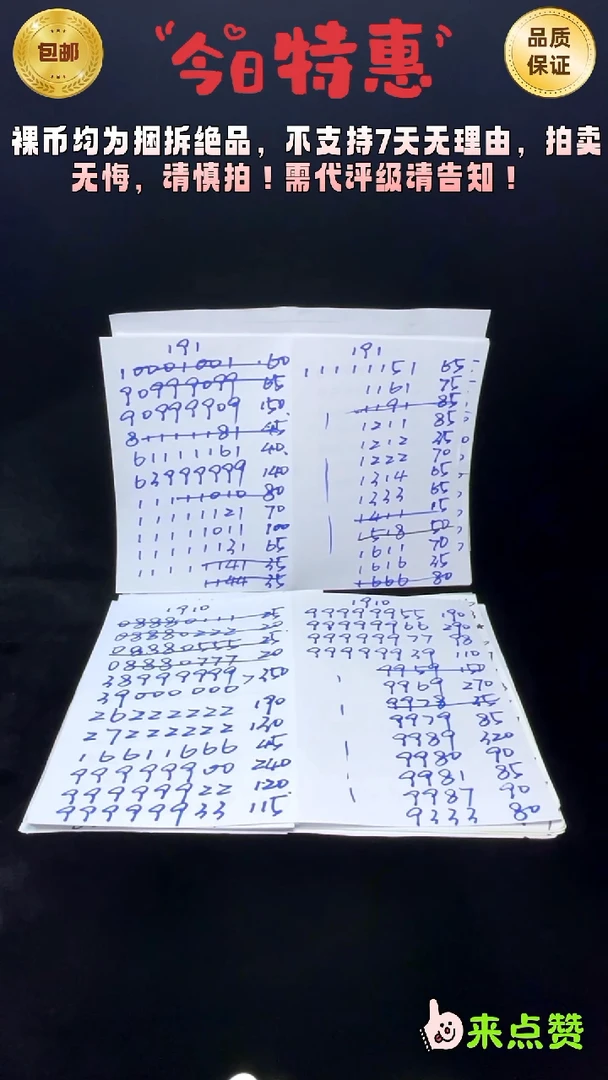 包邮
今日特惠
品质
保证
裸币均为捆拆绝品，不支持7天无理由，拍卖
无悔，请慎拍！需代评级请告知！
191
10001001 60
90999099 65
90999909 150
81111181 45
61111161 40
63999999 140
11111010 80
11111121 70
11111011 100
11111131 65
11111141 35
1144 35
191
11111151 65
1161 75
1191 85
1211 85
1212 350
1222 70
1314 65
1333 65
1411 15
1518 50
1611 70
1616 35
1666 80
1910
08880111 25
08880222 20
08880555 25
08880777 20
38999999 350
39000000
26222222 190
27222222 130
16611666 45
99999900 240
99999922 120
99999933 115
1910
99999955 190
99999966 290
99999977 98
99999939 110
9959 150
9969 270
9978 35
9979 85
9989 320
9980 90
9981 85
9987 90
9333 80
来点赞